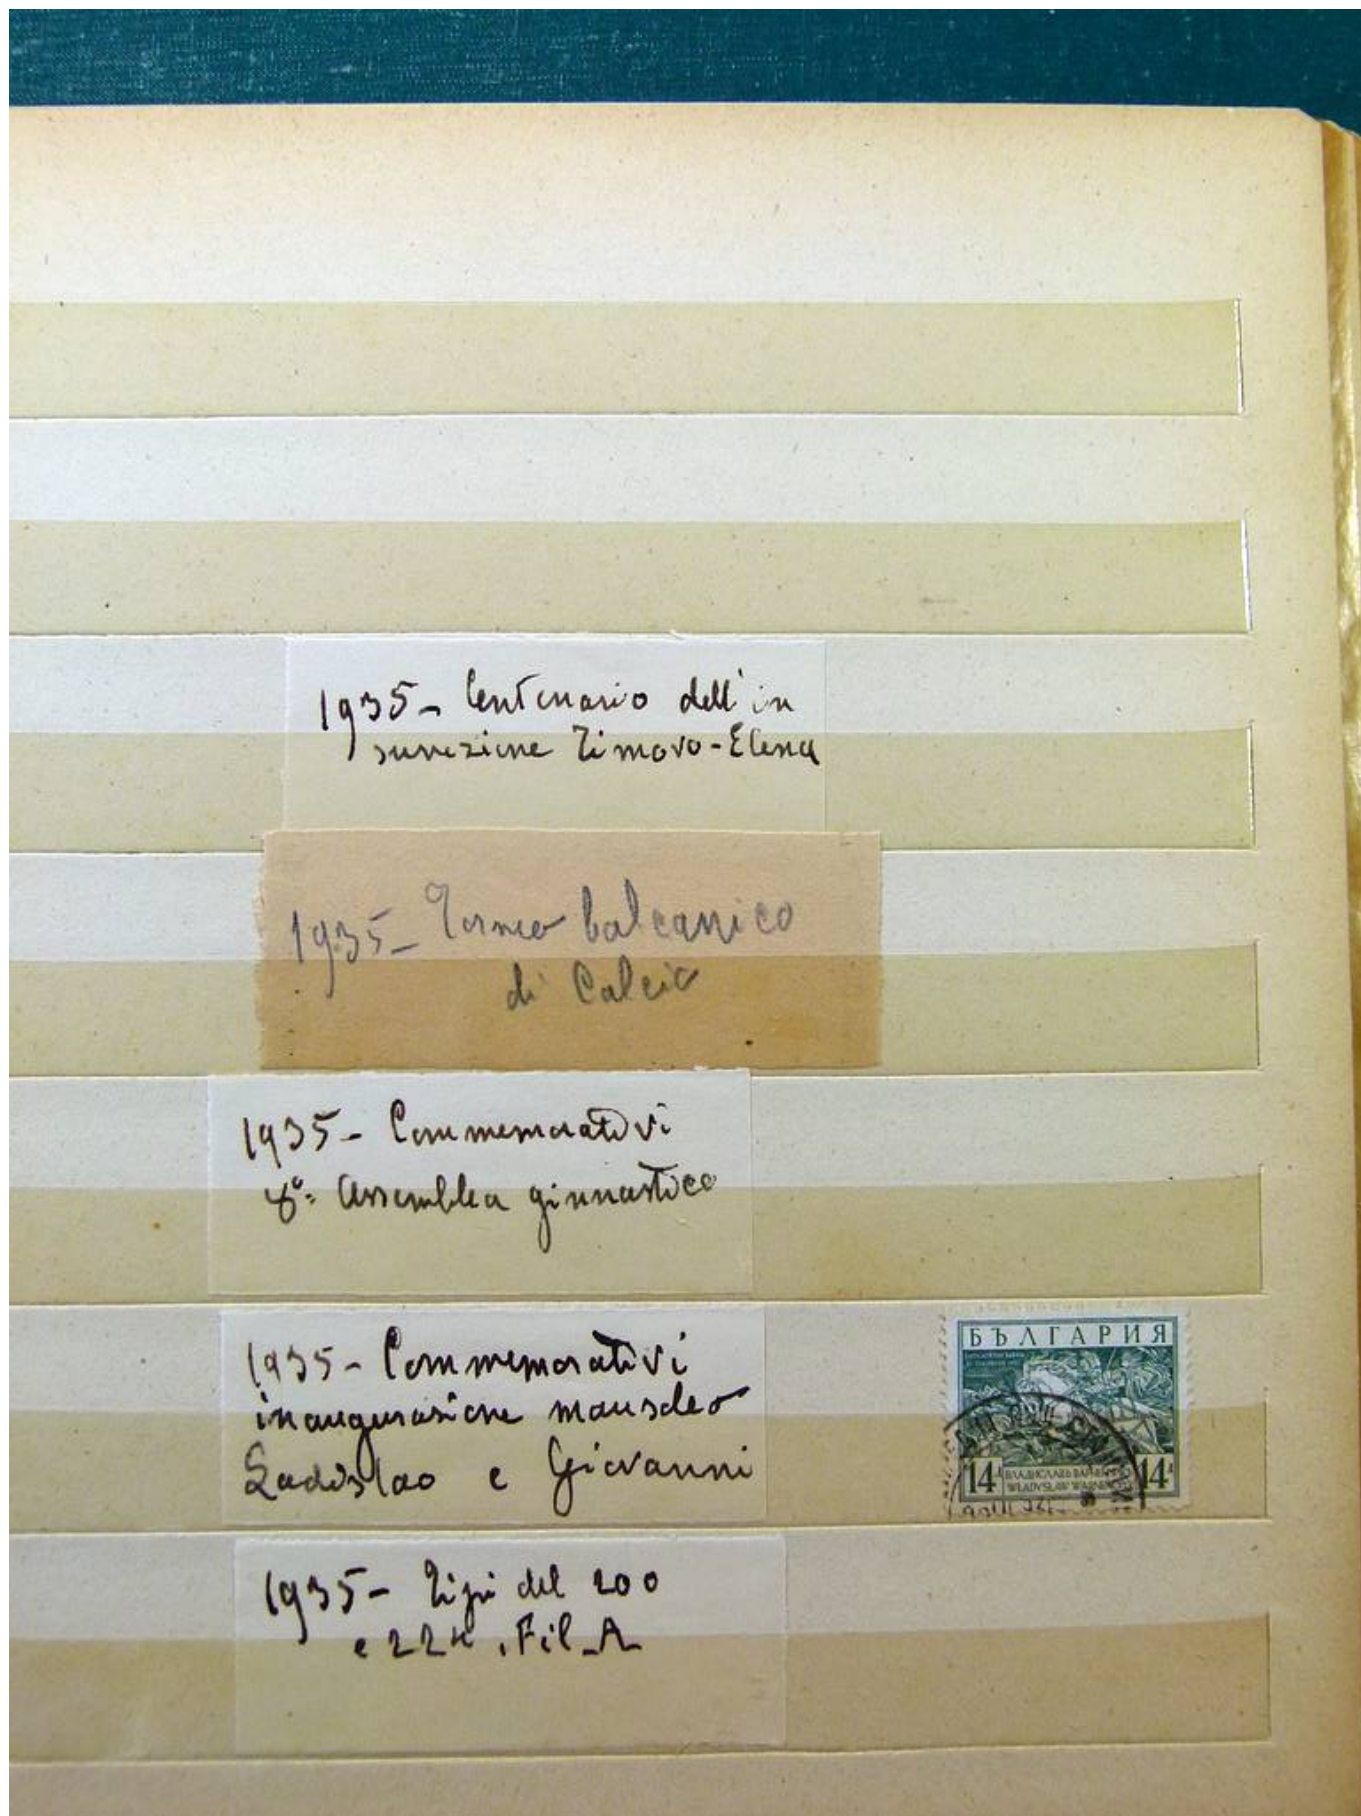 1935 - Centenario dell'in
surrezione Timovo-Elena
1935 - Torneo balcanico
di Calcio
1935 - Commemorativi
8°= Assemblea ginnastica
1935 - Commemorativi
inaugurazione mausoleo
Ladislao e Giovanni
БЪЛГАРИЯ
14 14
WŁADYSŁAW
1935 - Tipi del 200
e 224. Fil. A